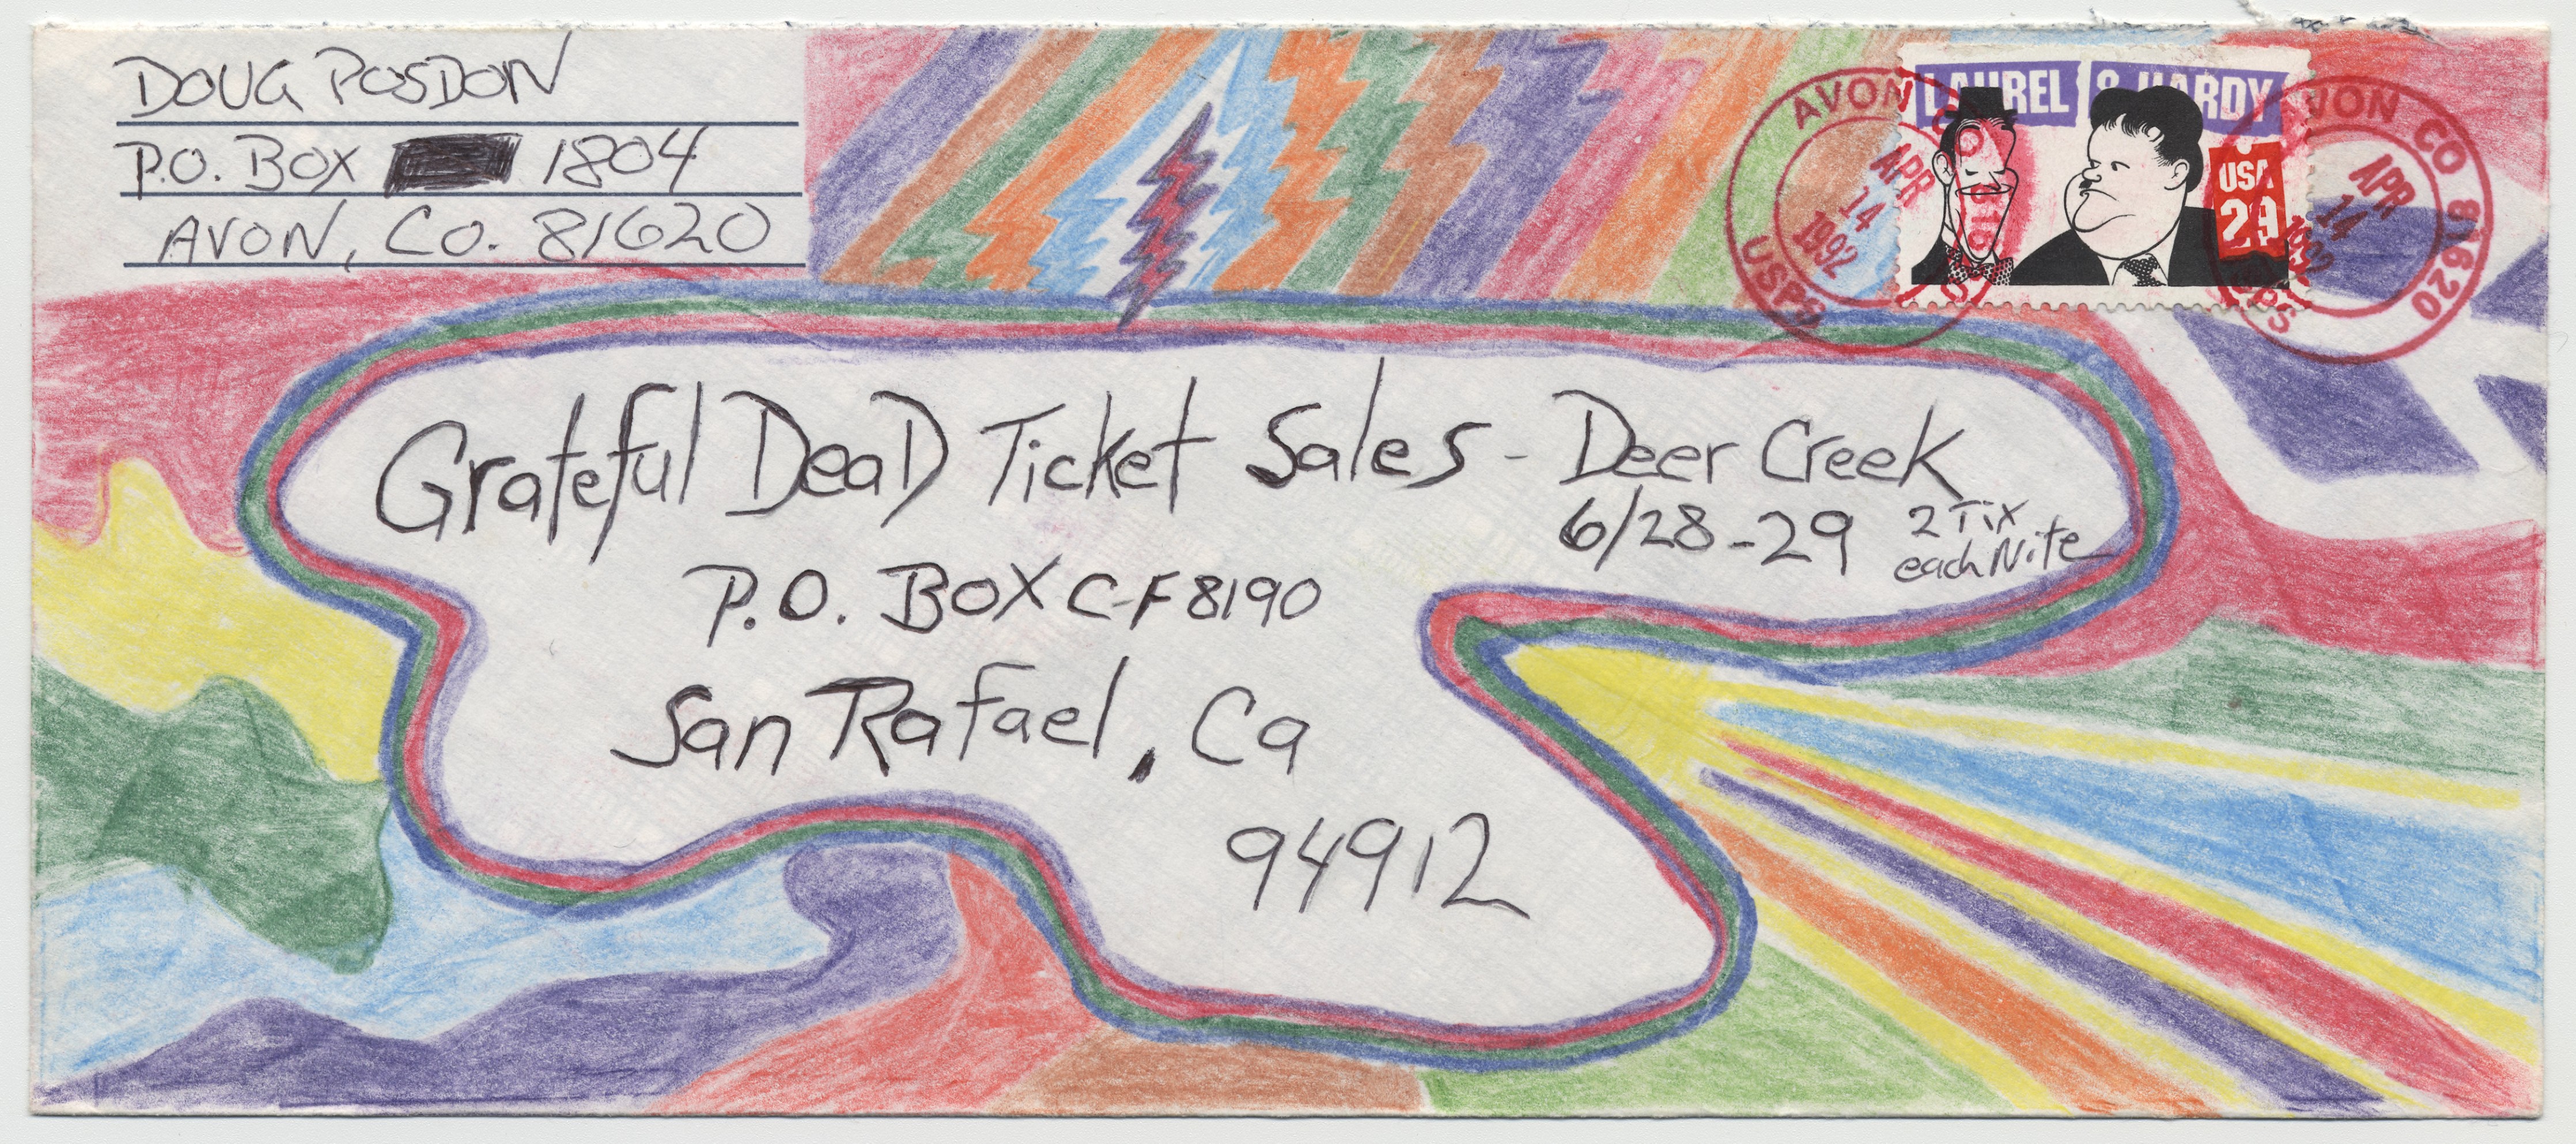 DOUG POSDON
P.O. BOX 1804
AVON, CO. 81620
LAUREL & HARDY
USA
29
AVON CO 81620
APR
14
1992
USPS
AVON CO 81620
APR
14
1992
USPS
Grateful DeaD Ticket Sales - Deer Creek
6/28-29 2 Tix
each Nite
P.O. BOX C-F 8190
San Rafael, Ca
94912